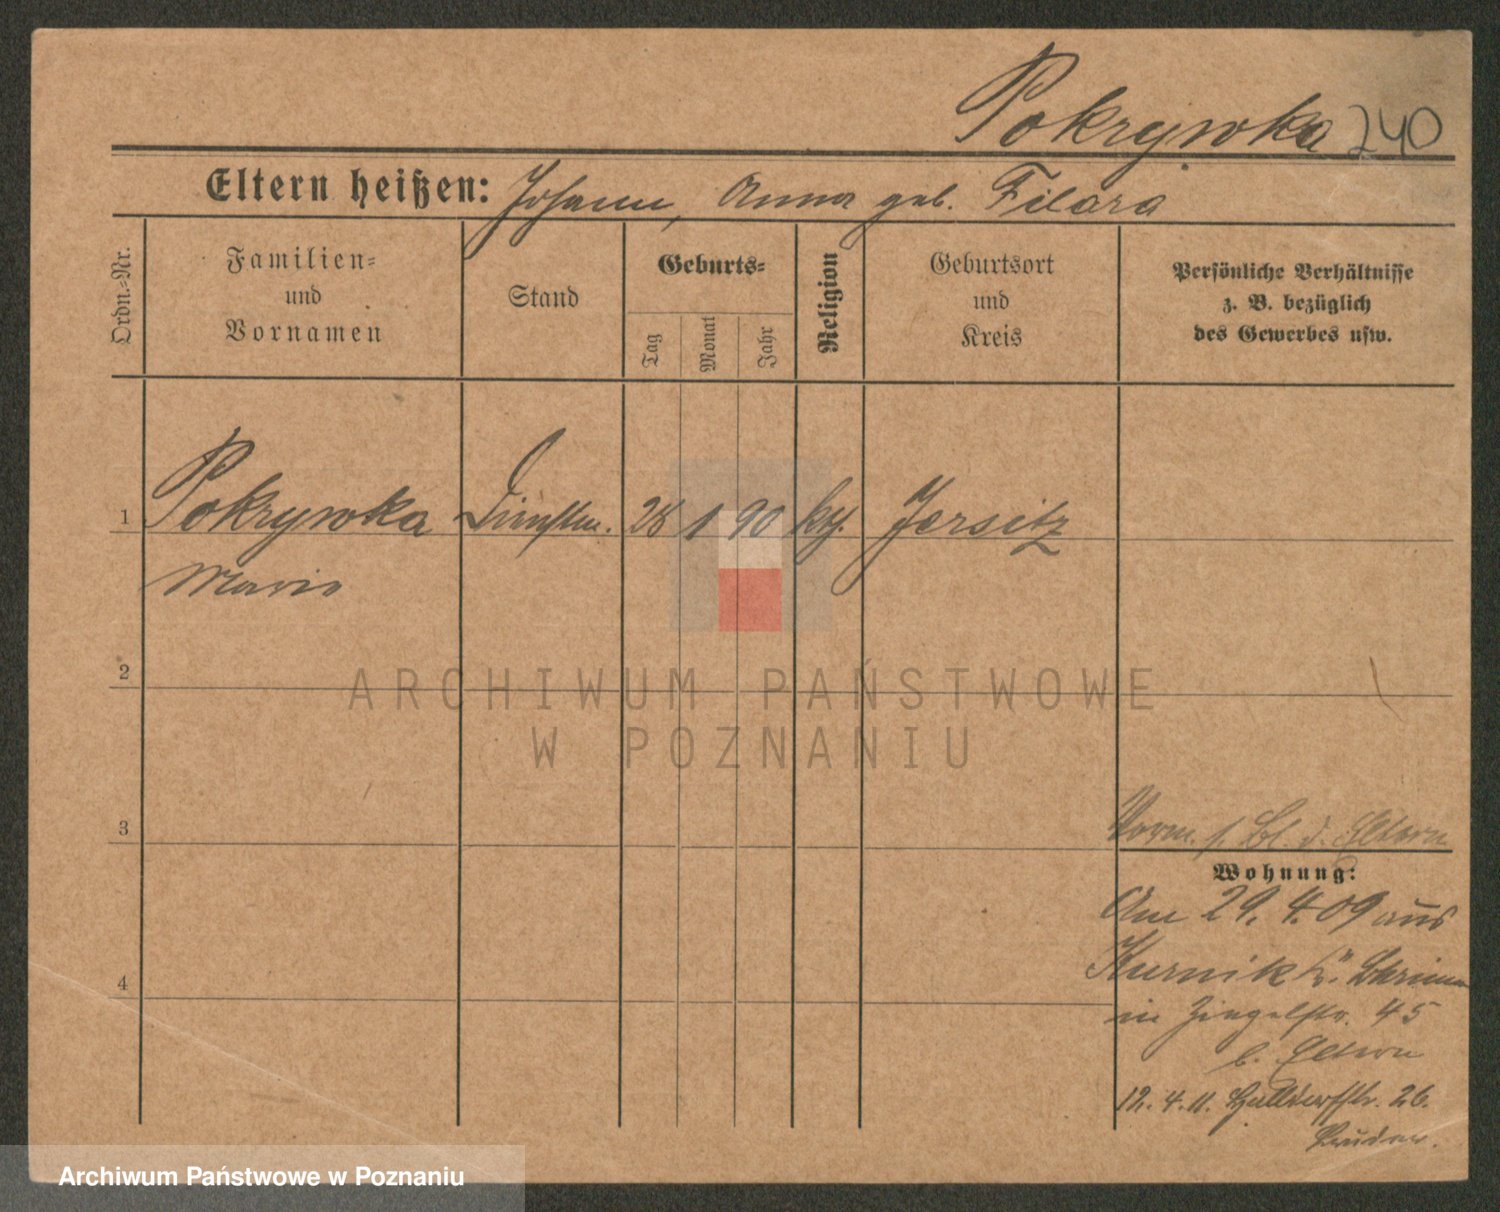 Pokrywka 240
Eltern heißen: Johann, Anna geb. Filara
Ordn.-Nr.
Familien-
und
Vornamen
Stand
Geburts-
Tag
Monat
Jahr
Religion
Geburtsort
und
Kreis
Persönliche Verhältnisse
z. B. bezüglich
des Gewerbes usw.
1 Pokrywka 28 1 90 kth. Jersitz
Marie
2
ARCHIWUM PAŃSTWOWE
W POZNANIU
3
Vorm. s. Bl. d. Eltern
Wohnung:
Am 29.4.09 aus
Kurnik Kr. Schrimm
in Ziegelstr. 45
b. Eltern
4
12.4.11. 26.
Archiwum Państwowe w Poznaniu